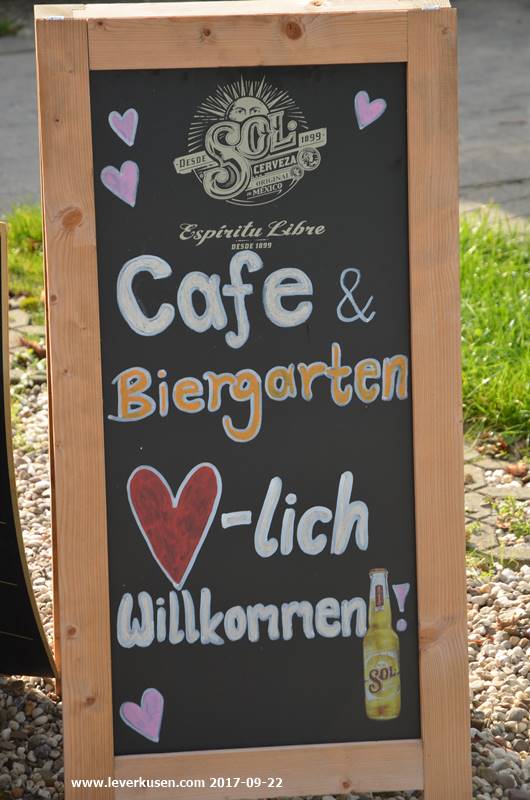 DESDE SOL 1899
CERVEZA
ORIGINAL
DE MEXICO
Espíritu Libre
DESDE 1899
Cafe &
Biergarten
-lich
Willkommen!
SOL
www.leverkusen.com 2017-09-22